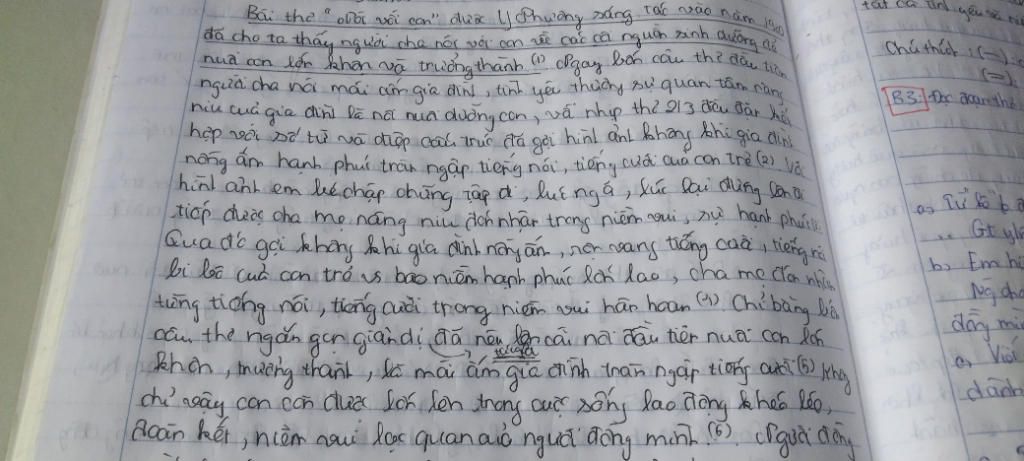 Bài thơ "Nói với con" được Y Phương sáng tác vào năm 1980
đã cho ta thấy người cha nói với con về các cả nguồn sinh dưỡng đã
nuôi con lớn khôn và trưởng thành (1) Ngay bốn câu thơ đầu tiên
người cha nói mái ấm gia đình, tình yêu thương sự quan tâm nâng
niu của gia đình là nơi nuôi dưỡng con, vã nhịp thơ 2/3 đều đặn kết
hợp với số từ và điệp cấu trúc đã gợi hình ảnh không khí gia đình
nồng ấm hạnh phúc tràn ngập tiếng nói, tiếng cười của con trẻ (2) Với
hình ảnh em bé chập chững tập đi, lúc ngã, lúc lại đứng lên đi
tiếp được cha mẹ nâng niu đón nhận trong niềm vui, sự hạnh phúc
Qua đó gợi không khí gia đình nồng ấm, rộn vang tiếng cười, tiếng nói
bi bô của con trẻ vs bao niềm hạnh phúc lớn lao, cha mẹ đón nhận
từng tiếng nói, tiếng cười trong niềm vui hân hoan Chỉ bằng bốn
câu thơ ngắn gọn giản dị đã nêu lên cái nôi đầu tiên nuôi con lớn
khôn, trưởng thành, là mái ấm gia đình tràn ngập tiếng cười (5) Không
chỉ vậy con còn được lớn lên trong cuộc sống lao động khéo léo,
đoàn kết, niềm vui lạc quan của người đồng mình (6) Người đồng
tất cả tình yêu
Chú thích: (—):
(=)
B3: Đọc đoạn thơ
a, Từ
b, Em
đồng mình
a, Viết